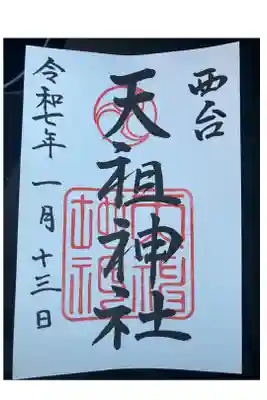 西台
天祖神社
令和七年 一月 十三日